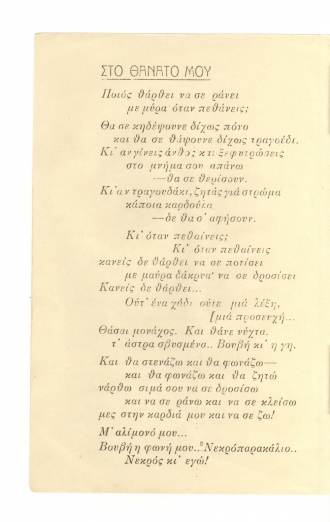 ΣΤΟ ΘΑΝΑΤΟ ΜΟΥ
Ποιός θάρθει να σε ράνει
με μύρα όταν πεθάνεις;
Θα σε κηδέψουνε δίχως πόνο
και θα σε θάψουνε δίχως τραγούδι.
Κι' αν γίνεις άνθος κι ξεφυτρώσεις
στο μνήμα σου απάνω
—θα σε θερίσουν.
Κι' αν τραγουδάκι, ζητάς γιά στρώμα
κάποια καρδούλα
—δε θα σ' αφήσουν.
Κι' όταν πεθαίνεις;
Κι' όταν πεθαίνεις
κανείς δε θάρθει να σε ποτίσει
με μαύρα δάκρυα· να σε δροσίσει
Κανείς δε θάρθει...
Ούτ' ένα χάδι ούτε μιά λέξη,
[μιά προσευχή...
Θάσαι μονάχος. Και θάνε νύχτα.
τ' άστρα σβυσμένα.. Βουβή κι' η γη.
Και θα στενάζω και θα φωνάζω—
και θα φωνάζω και θα ζητώ
νάρθω σιμά σου να σε δροσίσω
και να σε ράνω και να σε κλείσω
μες στην καρδιά μου και να σε ζω!
Μ' αλίμονό μου...
Βουβή η φωνή μου.. Νεκρόπαρακάλιο..
Νεκρός κι' εγώ!